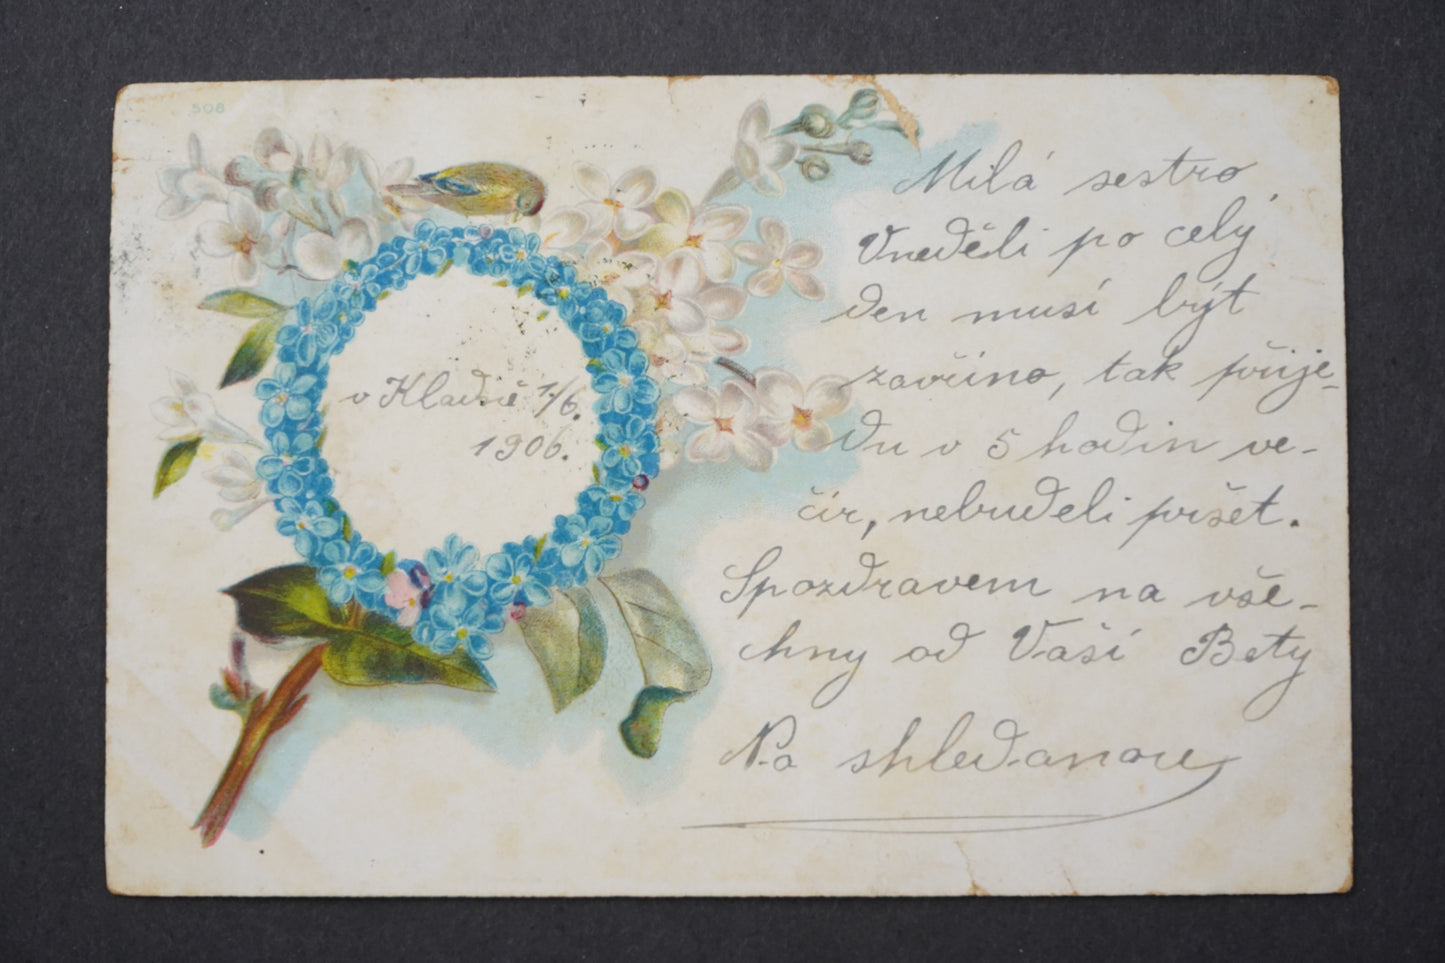 508
v Kladně 1/6.
1906.
Milá sestro
Vneděli po celý
den musí být
zavříno, tak přije-
du v 5 hodin ve-
čír, nebudeli pršet.
Spozdravem na vše-
chny od Vaší Bety
Na shledanou